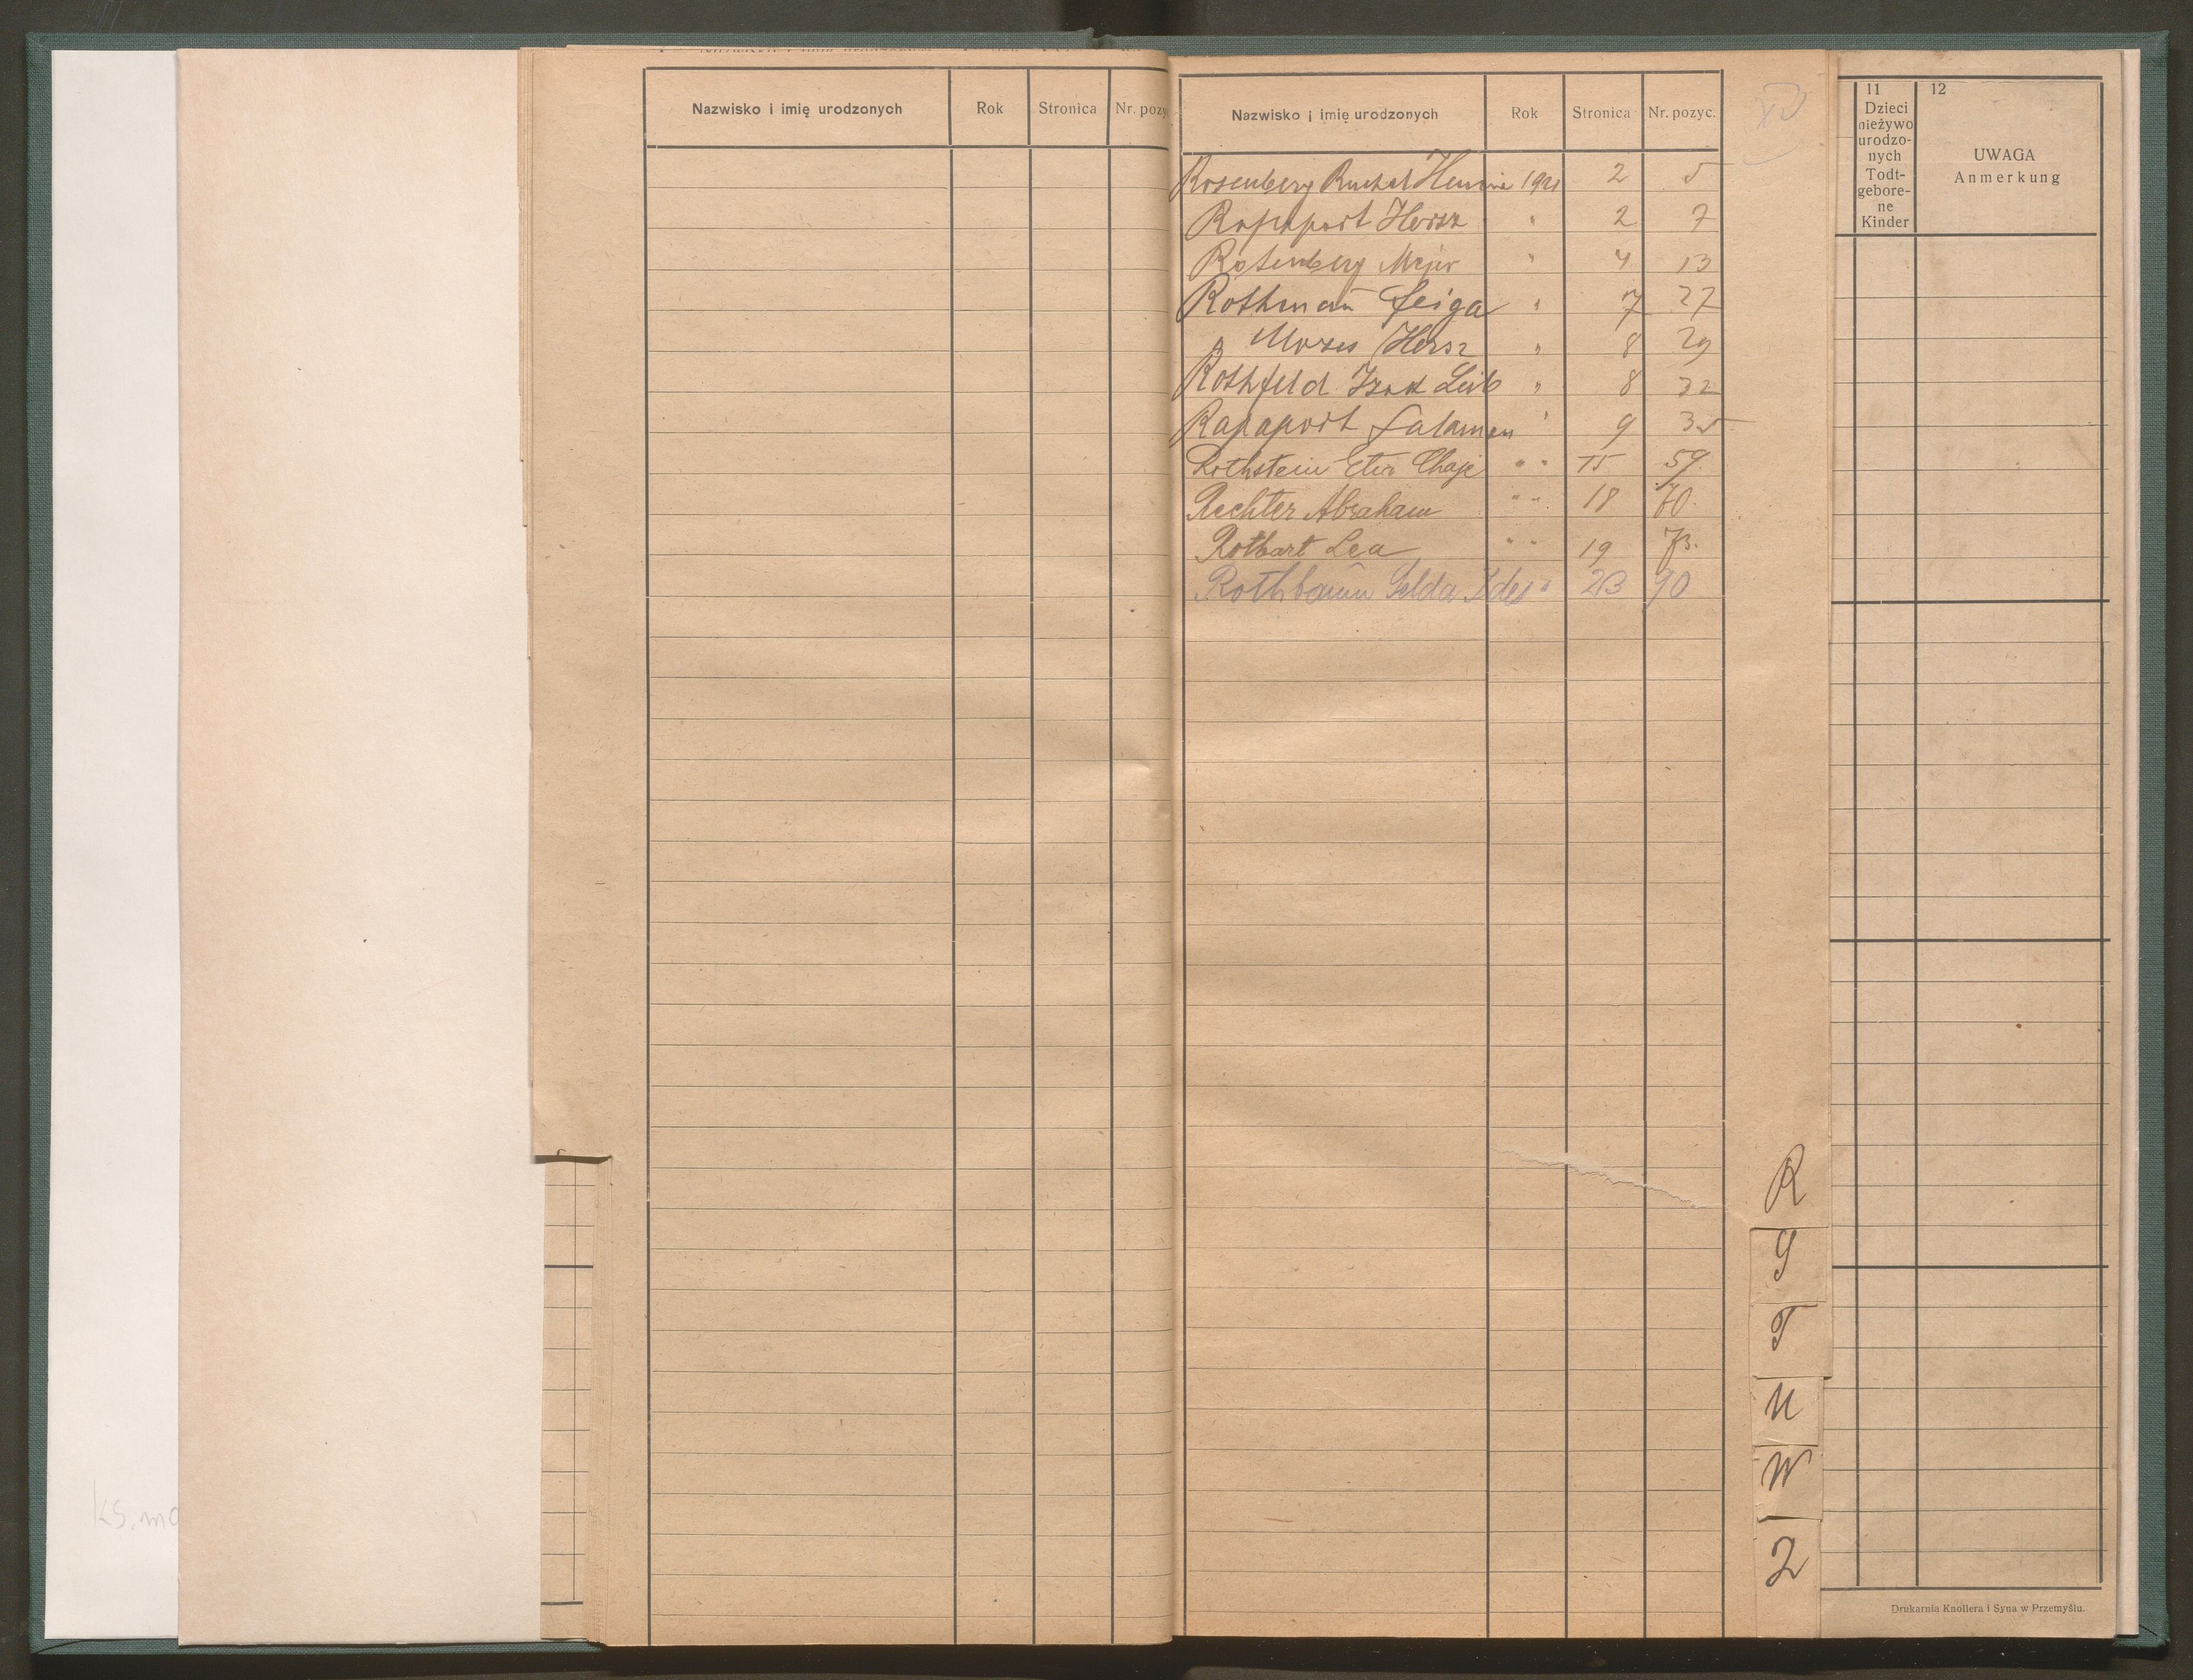 Nazwisko i imię urodzonych Rok Stronica Nr. pozyc
Nazwisko i imię urodzonych Rok Stronica Nr. pozyc.
Rosenberg Ruchel 1921 2 5
Rapaport Hersz " 2 7
Rosenberg Mejer " 4 13
Rothman Feiga " 7 27
" Mozes Hersz " 8 29
Rothfeld Izak Leib " 8 32
Rapaport Salamon " 9 35
Rothstein Chaje " " 15 59.
Rechter Abraham " " 18 70.
Rotbart Lea " " 19 73.
Rothbaum Selda Ides " 23 90
R
S
T
U
W
Z
11
Dzieci
nieżywo
urodzo-
nych
Todt-
gebore-
ne
Kinder
12
UWAGA
Anmerkung
Drukarnia Knollera i Syna w Przemyślu.
ks. mo